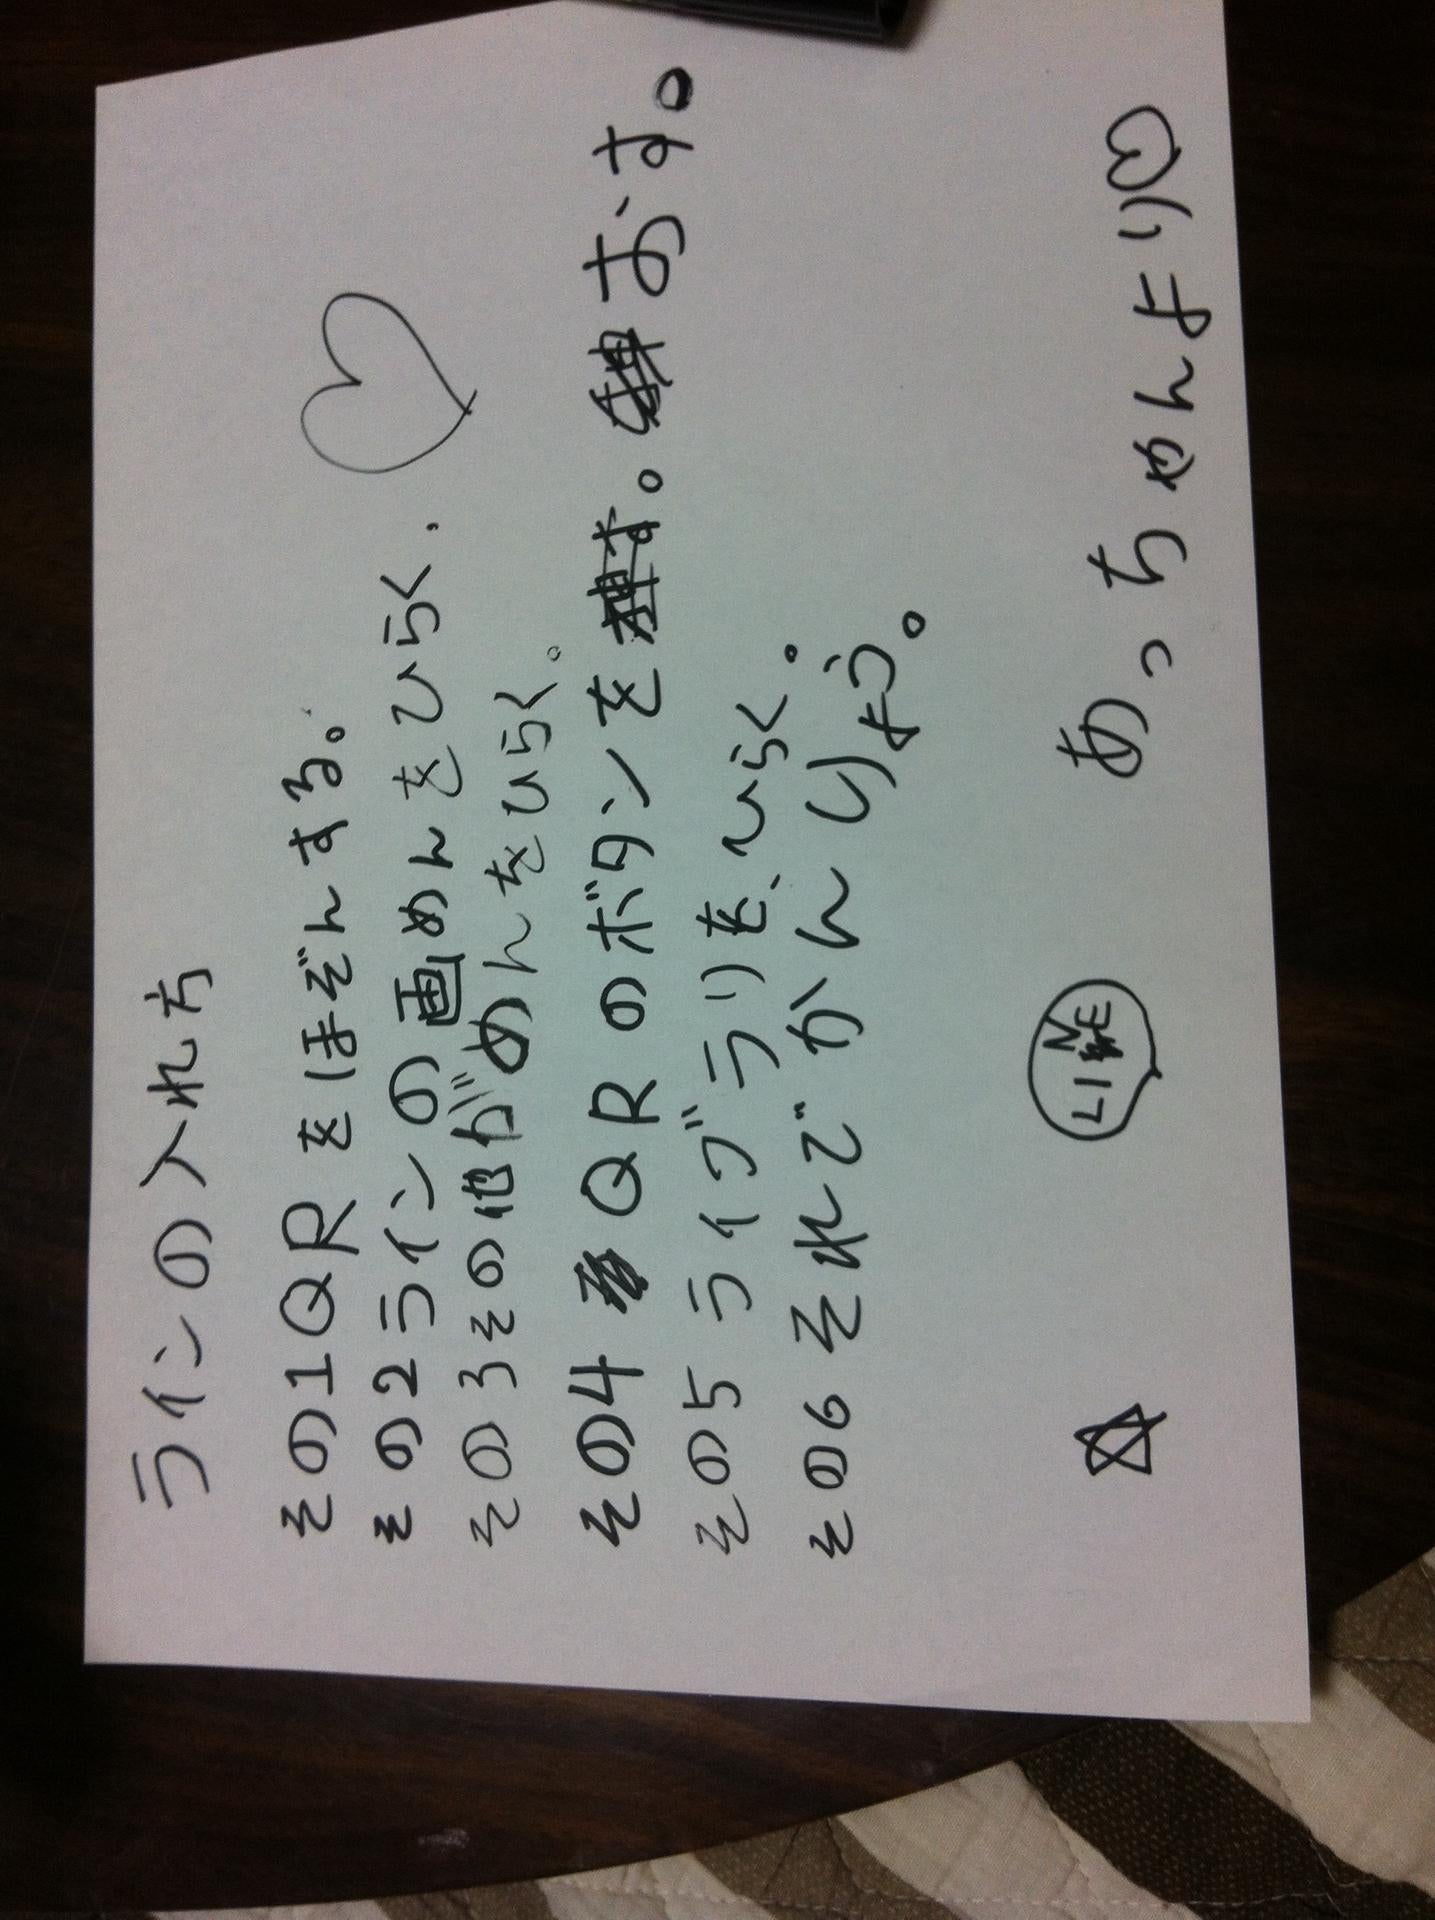 ラインの入れ方
その1QRをほぞんする。
その2ラインの画めんをひらく.
その3その他がめんをひらく。
その4 QRのボタンを。おす。
その5 ライブラリを、ひらく。
その6 それでかんりよう。
LINE
あっちゃんより